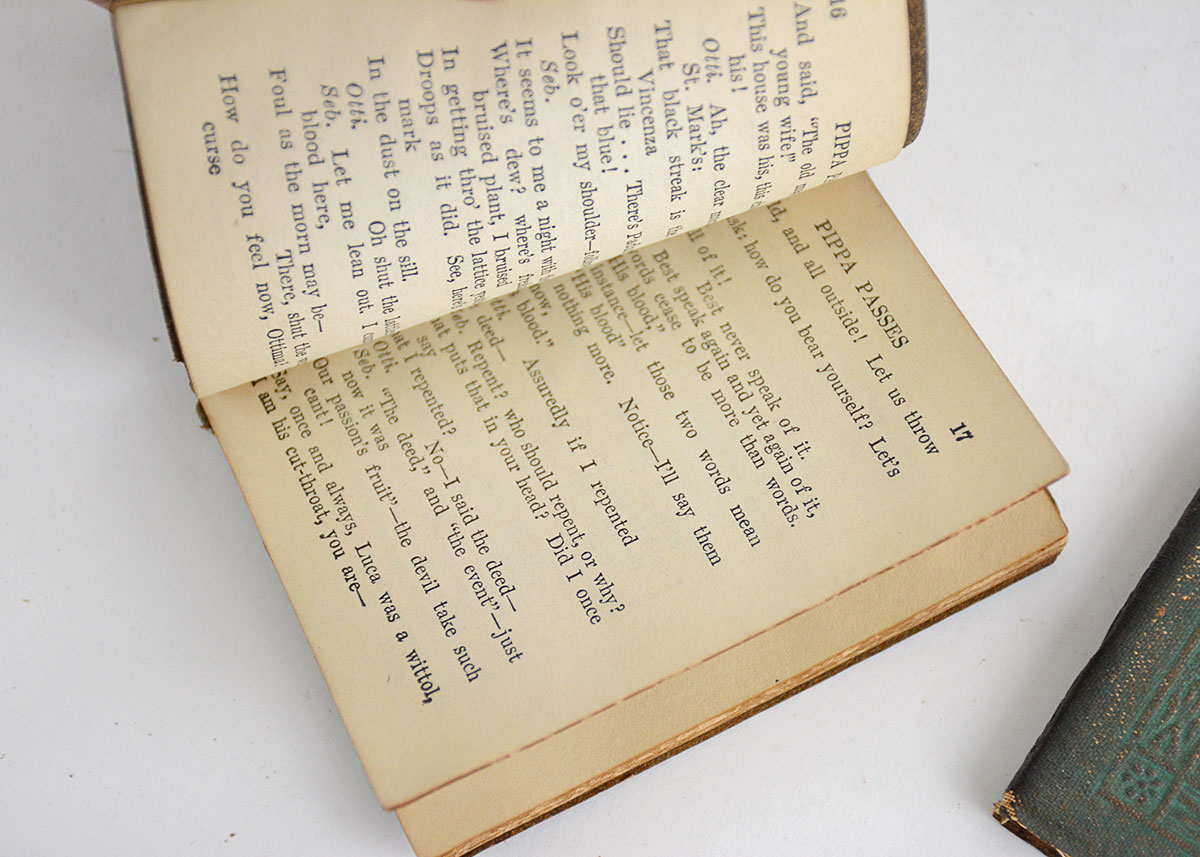 16 PIPPA
And said, "The old
young wife!"
This house was his, this
his!
Otti. Ah, the clear
St. Mark's:
That black streak is
Vincenza
Should lie . . . There's
that blue!
Look o'er my shoulder—
Seb.
It seems to me a night with
Where's dew? where's
bruised plant, I bruised
In getting thro' the lattice
Droops as it did. See, here
mark
In the dust on the sill.
Otti. Oh shut the
Seb. Let me lean out. I
blood here,
Foul as the morn may be—
There, shut the
How do you feel now, Ottima
curse
PIPPA PASSES 17
and all outside! Let us throw
how do you bear yourself? Let's
of it!
Best never speak of it.
Best speak again and yet again of it,
words cease to be more than words.
His blood,"
instance—let those two words mean
"His blood"
nothing more. Notice—I'll say them
now,
blood."
Assuredly if I repented
deed—
Repent? who should repent, or why?
puts that in your head? Did I once
say
I repented? No—I said the deed—
Otti. "The deed," and "the event"—just
now it was
Our passion's fruit"—the devil take such
cant!
Say, once and always, Luca was a wittol,
I am his cut-throat, you are—